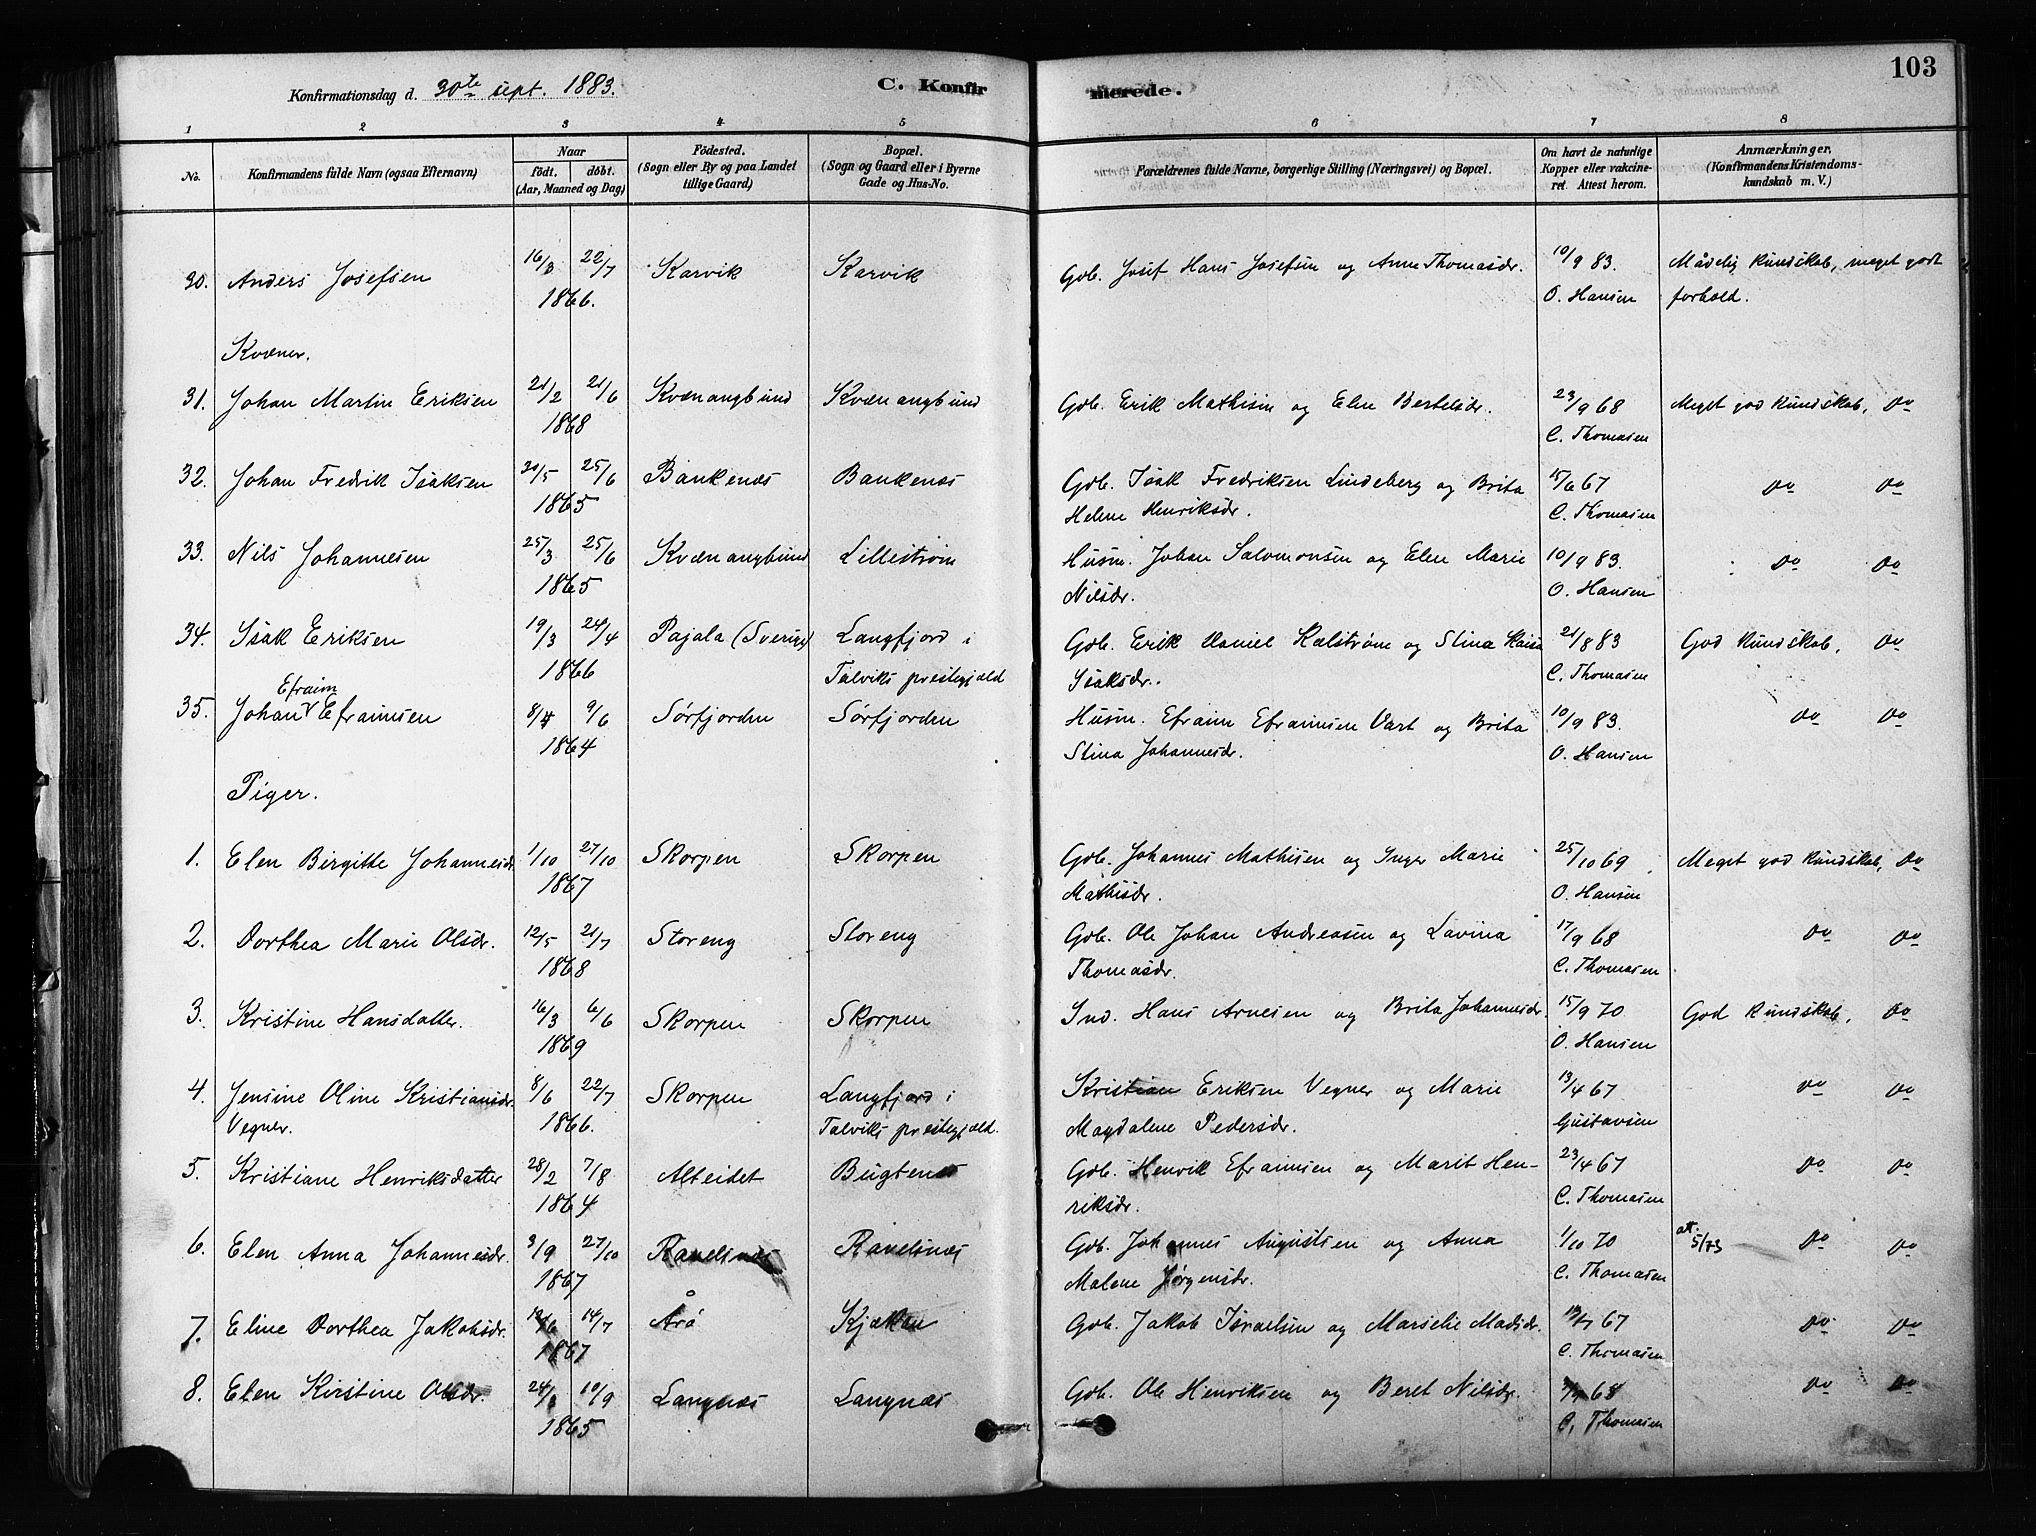 103
Konfirmationsdag d. 30te sept. 1883.
C. Konfirmerede.
1 2 3 4 5 6 7 8
No.
Konfirmandens fulde Navn (ogsaa Efternavn)
Naar
født. døbt.
(Aar, Maaned og Dag)
Fødested.
(Sogn eller By og paa Landet
tillige Gaard)
Bopæl.
(Sogn og Gaard eller i Byerne
Gade og Hus-No.
Forældrenes fulde Navne, borgerlige Stilling (Næringsvei) og Bopæl.
Om havt de naturlige
Kopper eller vakcine-
ret. Attest herom.
Anmærkninger.
(Konfirmandens Kristendoms-
kundskab m. V.)
30. Anders Josefsen 16/3 22/7 Karvik Karvik Gdb. Josef Hans Josefsen og Anne Thomasdr. 10/9 83. Mådelig kundskab, meget godt
1866. O. Hansen forhold.
Kvæner.
31. Johan Martin Eriksen 21/2 21/6 Kvænangbund Kvænangbund Gdb. Erik Mathisen og Elen Bertelsdr. 23/9 68 Meget god kundskab, do
1868 C. Thomasen
32. Johan Fredrik Isaksen 20/5 25/6 Bankenæs Bankenæs Gdb. Isak Fredriksen Lindeberg og Brita 15/6 67 do do
1865 Helene Henriksdr. C. Thomasen
33. Nils Johannesen 25/3 25/6 Kvænangbund Lillestrøm Husm. Johan Salomonsen og Elen Marie 10/9 83. do do
1865 Nilsdr. O. Hansen
34. Isak Eriksen 19/3 24/4 Pajala (Sverige) Langfjord i Gdb. Erik Daniel Kalstrøm og Stina Kaisa 21/8 83 God kundskab, do
1866 Talviks prestegjæld Isaksdr. C. Thomasen
Efraim
35. Johan Efraimsen 8/4 9/6 Sørfjorden Sørfjorden Husm. Efraim Efraimsen Vart og Brita 10/9 83. do do
1864 Stina Johannesdr. O. Hansen
Piger.
1. Elen Birgitte Johannesdr. 1/10 27/10 Skorpen Skorpen Gdb. Johannes Mathisen og Inger Marie 25/10 69 Meget god kundskab, do
1867 Mathisdr. O. Hansen
2. Dorthea Marie Olsdr. 12/5 21/7 Storeng Storeng Gdb. Ole Johan Andreasen og Lavina 17/9 68 do do
1868 Thomasdr. C. Thomasen
3. Kristine Hansdatter. 16/3 6/6 Skorpen Skorpen Ind. Hans Arnesen og Brita Johannesdr. 15/9 70 God kundskab, do
1869 O. Hansen
4. Jensine Oline Kristiansdr. 8/6 22/7 Skorpen Langfjord i Kristian Eriksen Vegner og Marie 13/4 67 do do
Vegner. 1866. Talviks prestegjæld. Magdalene Pedersdr. Gustavsen
5. Kristiane Henriksdatter 28/2 7/8 Alteidet Bugtenes Gdb. Henrik Efraimsen og Marit Hen- 23/4 67 do do
1864 riksdr. C. Thomasen
6. Elen Anna Johannesdr. 3/9 27/10 Ravelsnæs Ravelsnæs Gdb. Johannes Augustsen og Anna 1/10 70 at. 5/73 do do
1867 Malene Jørgensdr. C. Thomasen
7. Eline Dorthea Jakobsdr. 14/7 Årø Kjækan Gdb. Jakob Israelsen og Marselie Madsdr. 67 do do
1867 C. Thomasen
8. Elen Kirstine Olsdr. 10/9 Langnæs Langnæs Gdb. Ole Henriksen og Beret Nilsdr. 68 do do
1865 C. Thomasen